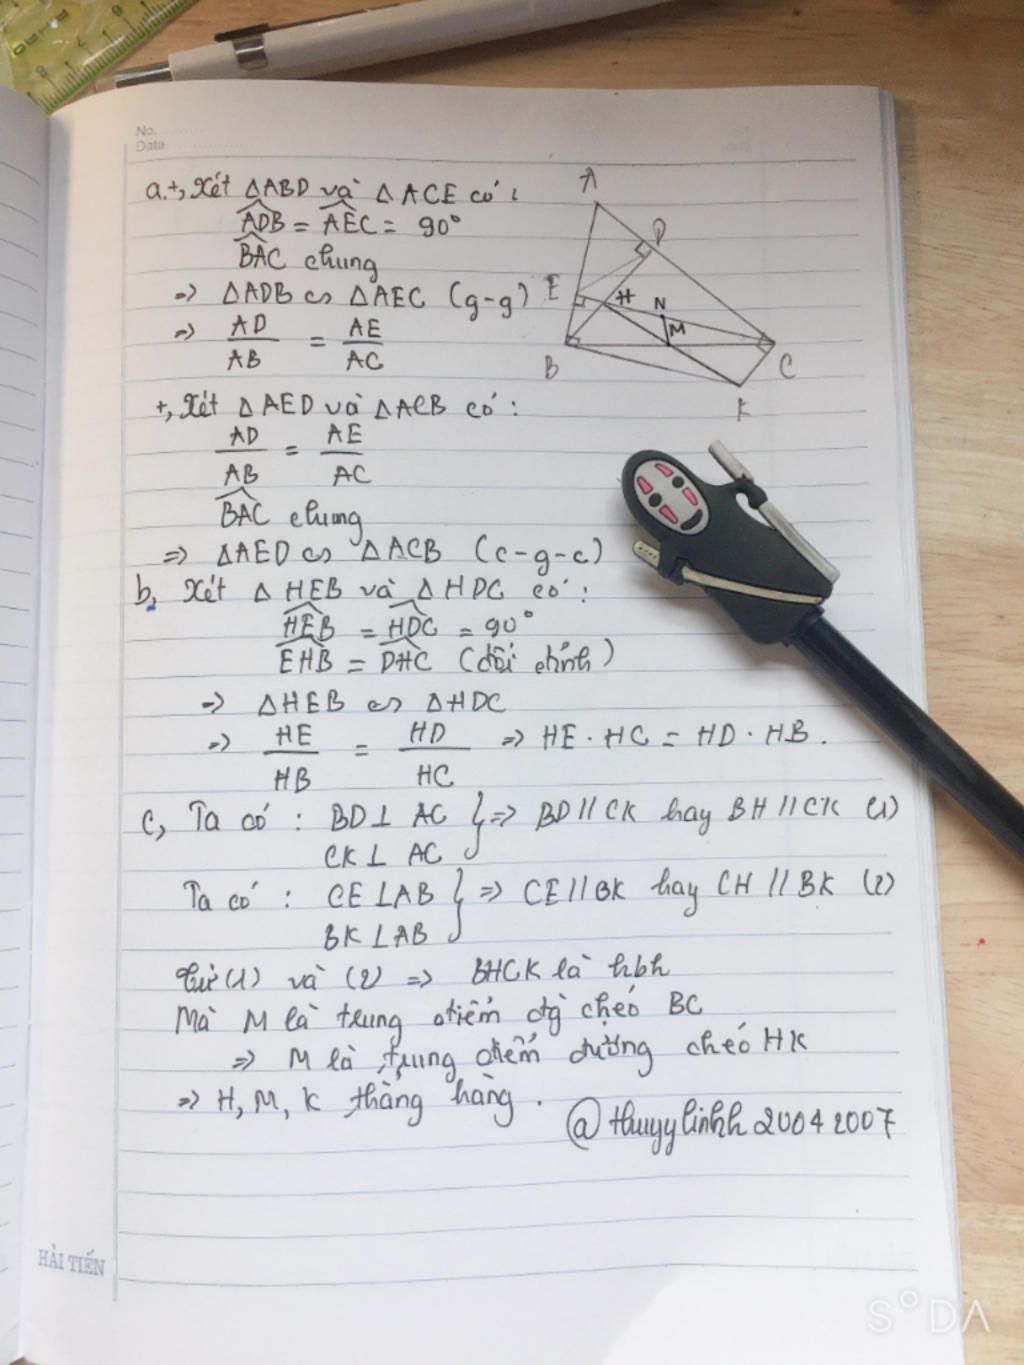 No.
Date
a.+, Xét ΔABD và ΔACE có:
ADB = AEC = 90°
BAC chung
=> ΔADB ∽ ΔAEC (g-g)
=> AD/AB = AE/AC
+, Xét ΔAED và ΔACB có:
AD/AB = AE/AC
BAC chung
=> ΔAED ∽ ΔACB (c-g-c)
b, Xét Δ HEB và Δ HDC có:
HEB = HDC = 90°
EHB = DHC (đối đỉnh)
=> ΔHEB ∽ ΔHDC
=> HE/HB = HD/HC => HE . HC = HD . HB.
c, Ta có : BD⊥ AC } => BD // CK hay BH // CK (1)
CK ⊥ AC
Ta có : CE ⊥AB } => CE // BK hay CH // BK (2)
BK ⊥ AB
Từ (1) và (2) => BHCK là hbh
Mà M là trung điểm đg chéo BC
=> M là trung điểm đường chéo HK
=> H, M, K thẳng hàng.
@thuyylinhh20042007
A
D
E
H
N
M
B
C
K
HẢI TIẾN
S°DA